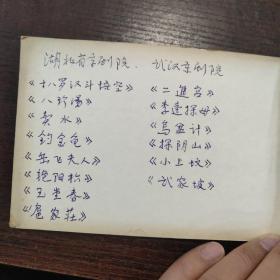 湖北省京剧院、武汉京剧院
《十八罗汉斗悟空》
《八珍汤》
《卖水》
《钓金龟》
《岳飞夫人》
《艳阳楼》
《玉堂春》
《扈家莊》
《二進宫》
《李逵探母》
《乌盆计》
《探阴山》
《小上坟》
《武家坡》